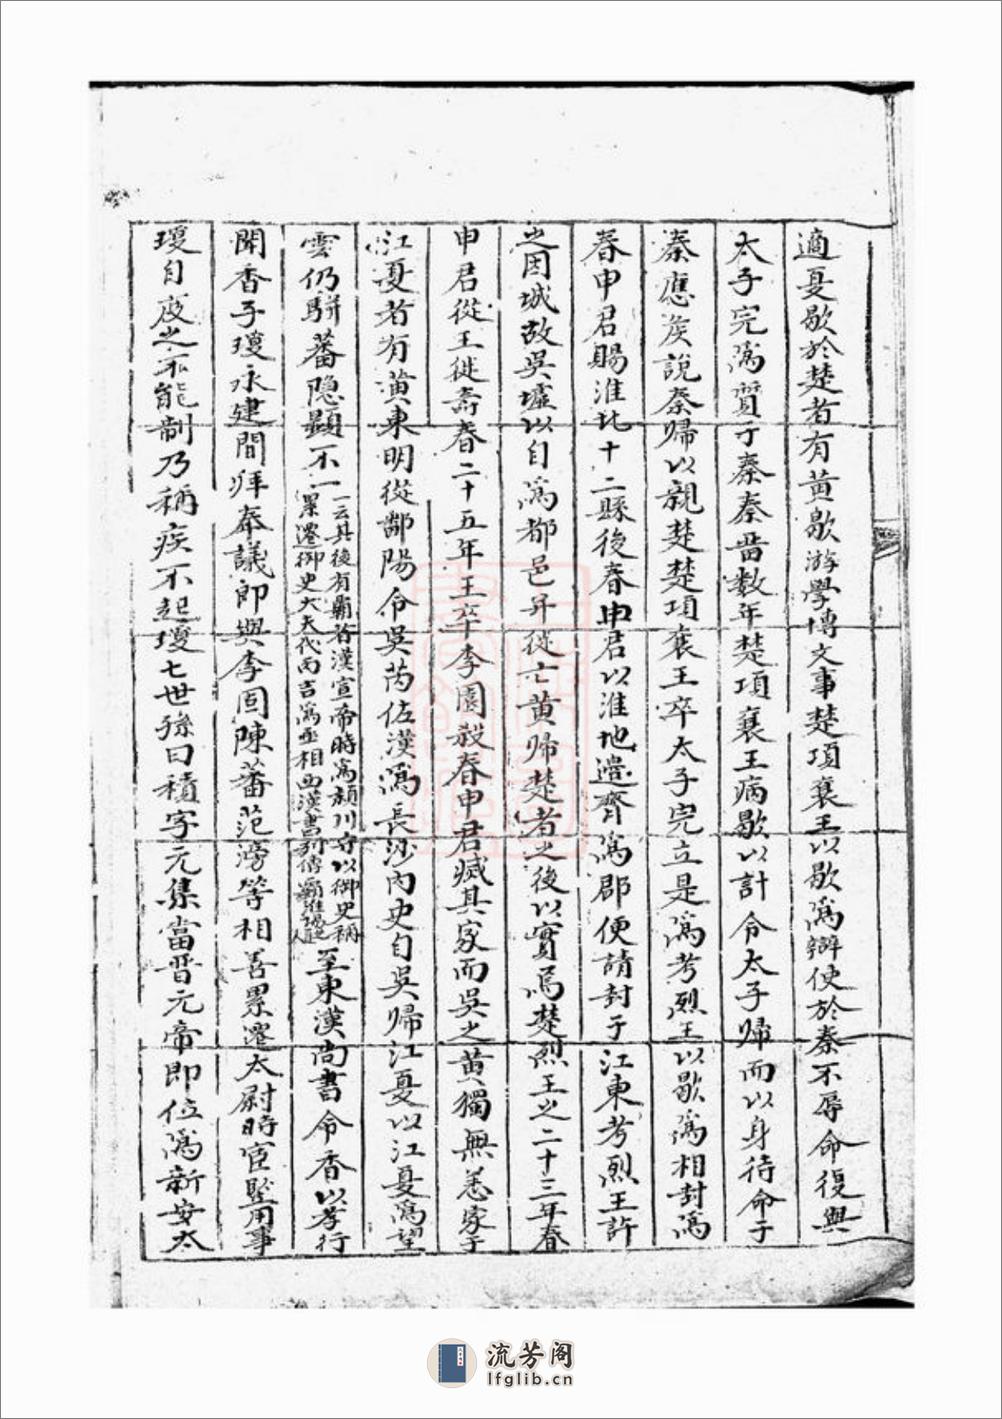 適夏歇於楚者有黄歇游學博文事楚項襄王以歇爲辯使於秦不辱命復與
太子完爲質于秦秦畱数年楚項襄王病歇以計令太子歸而以身待命于
秦應侯說秦歸以親楚楚項襄王卒太子完立是爲考烈王以歇爲相封爲
春申君賜淮北十二縣後春申君以淮地邉齊爲郡便請封于江東考烈王許
之因城故吳墟以自爲都邑并從亡黄歸楚者之後以實焉楚烈王之二十三年春
申君從王徙壽春二十五年王卒李園殺春申君滅其家而吳之黄獨無恙家于
江夏者有黄東明從鄱陽令吳芮佐漢爲長沙內史自吳歸江夏以江夏爲望
雲仍駢蕃隐顯不一
一云其後有霸者漢宣帝時爲頴川守以御史稱
累遷御史大夫代丙吉爲丞相西漢書列傳霸淮陽人
至東漢尚書令香以孝行
聞香子瓊永建間拜奉議郎與李固陳蕃范滂等相善累遷太尉時宦豎用事
瓊自度之不能制乃稱疾不起瓊七世孫曰積字元集當晋元帝即位爲新安太
流芳阁
lfglib.cn